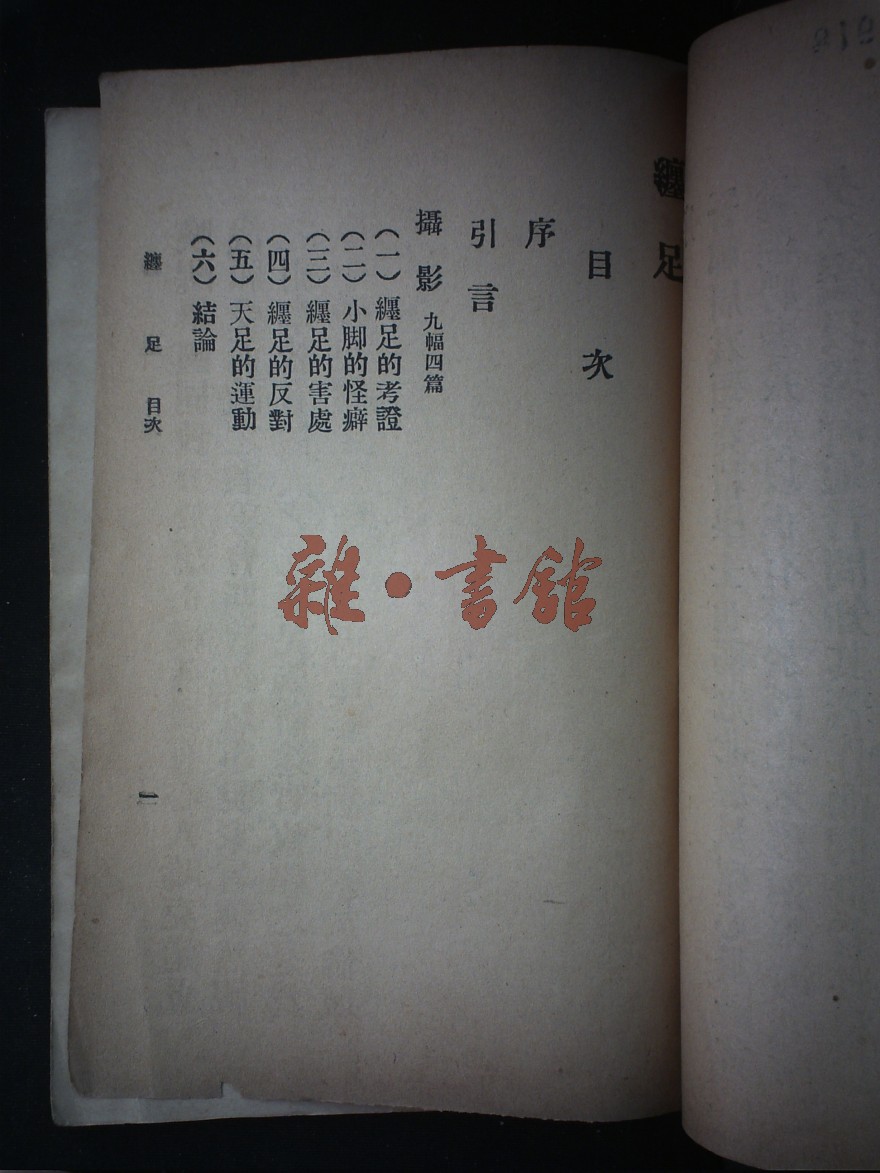 纏足
目次
序
引言
攝影 九幅四篇
(一) 纏足的考證
(二) 小脚的怪癖
(三) 纏足的害處
(四) 纏足的反對
(五) 天足的運動
(六) 結論
纏足 目次
一
雜·書館